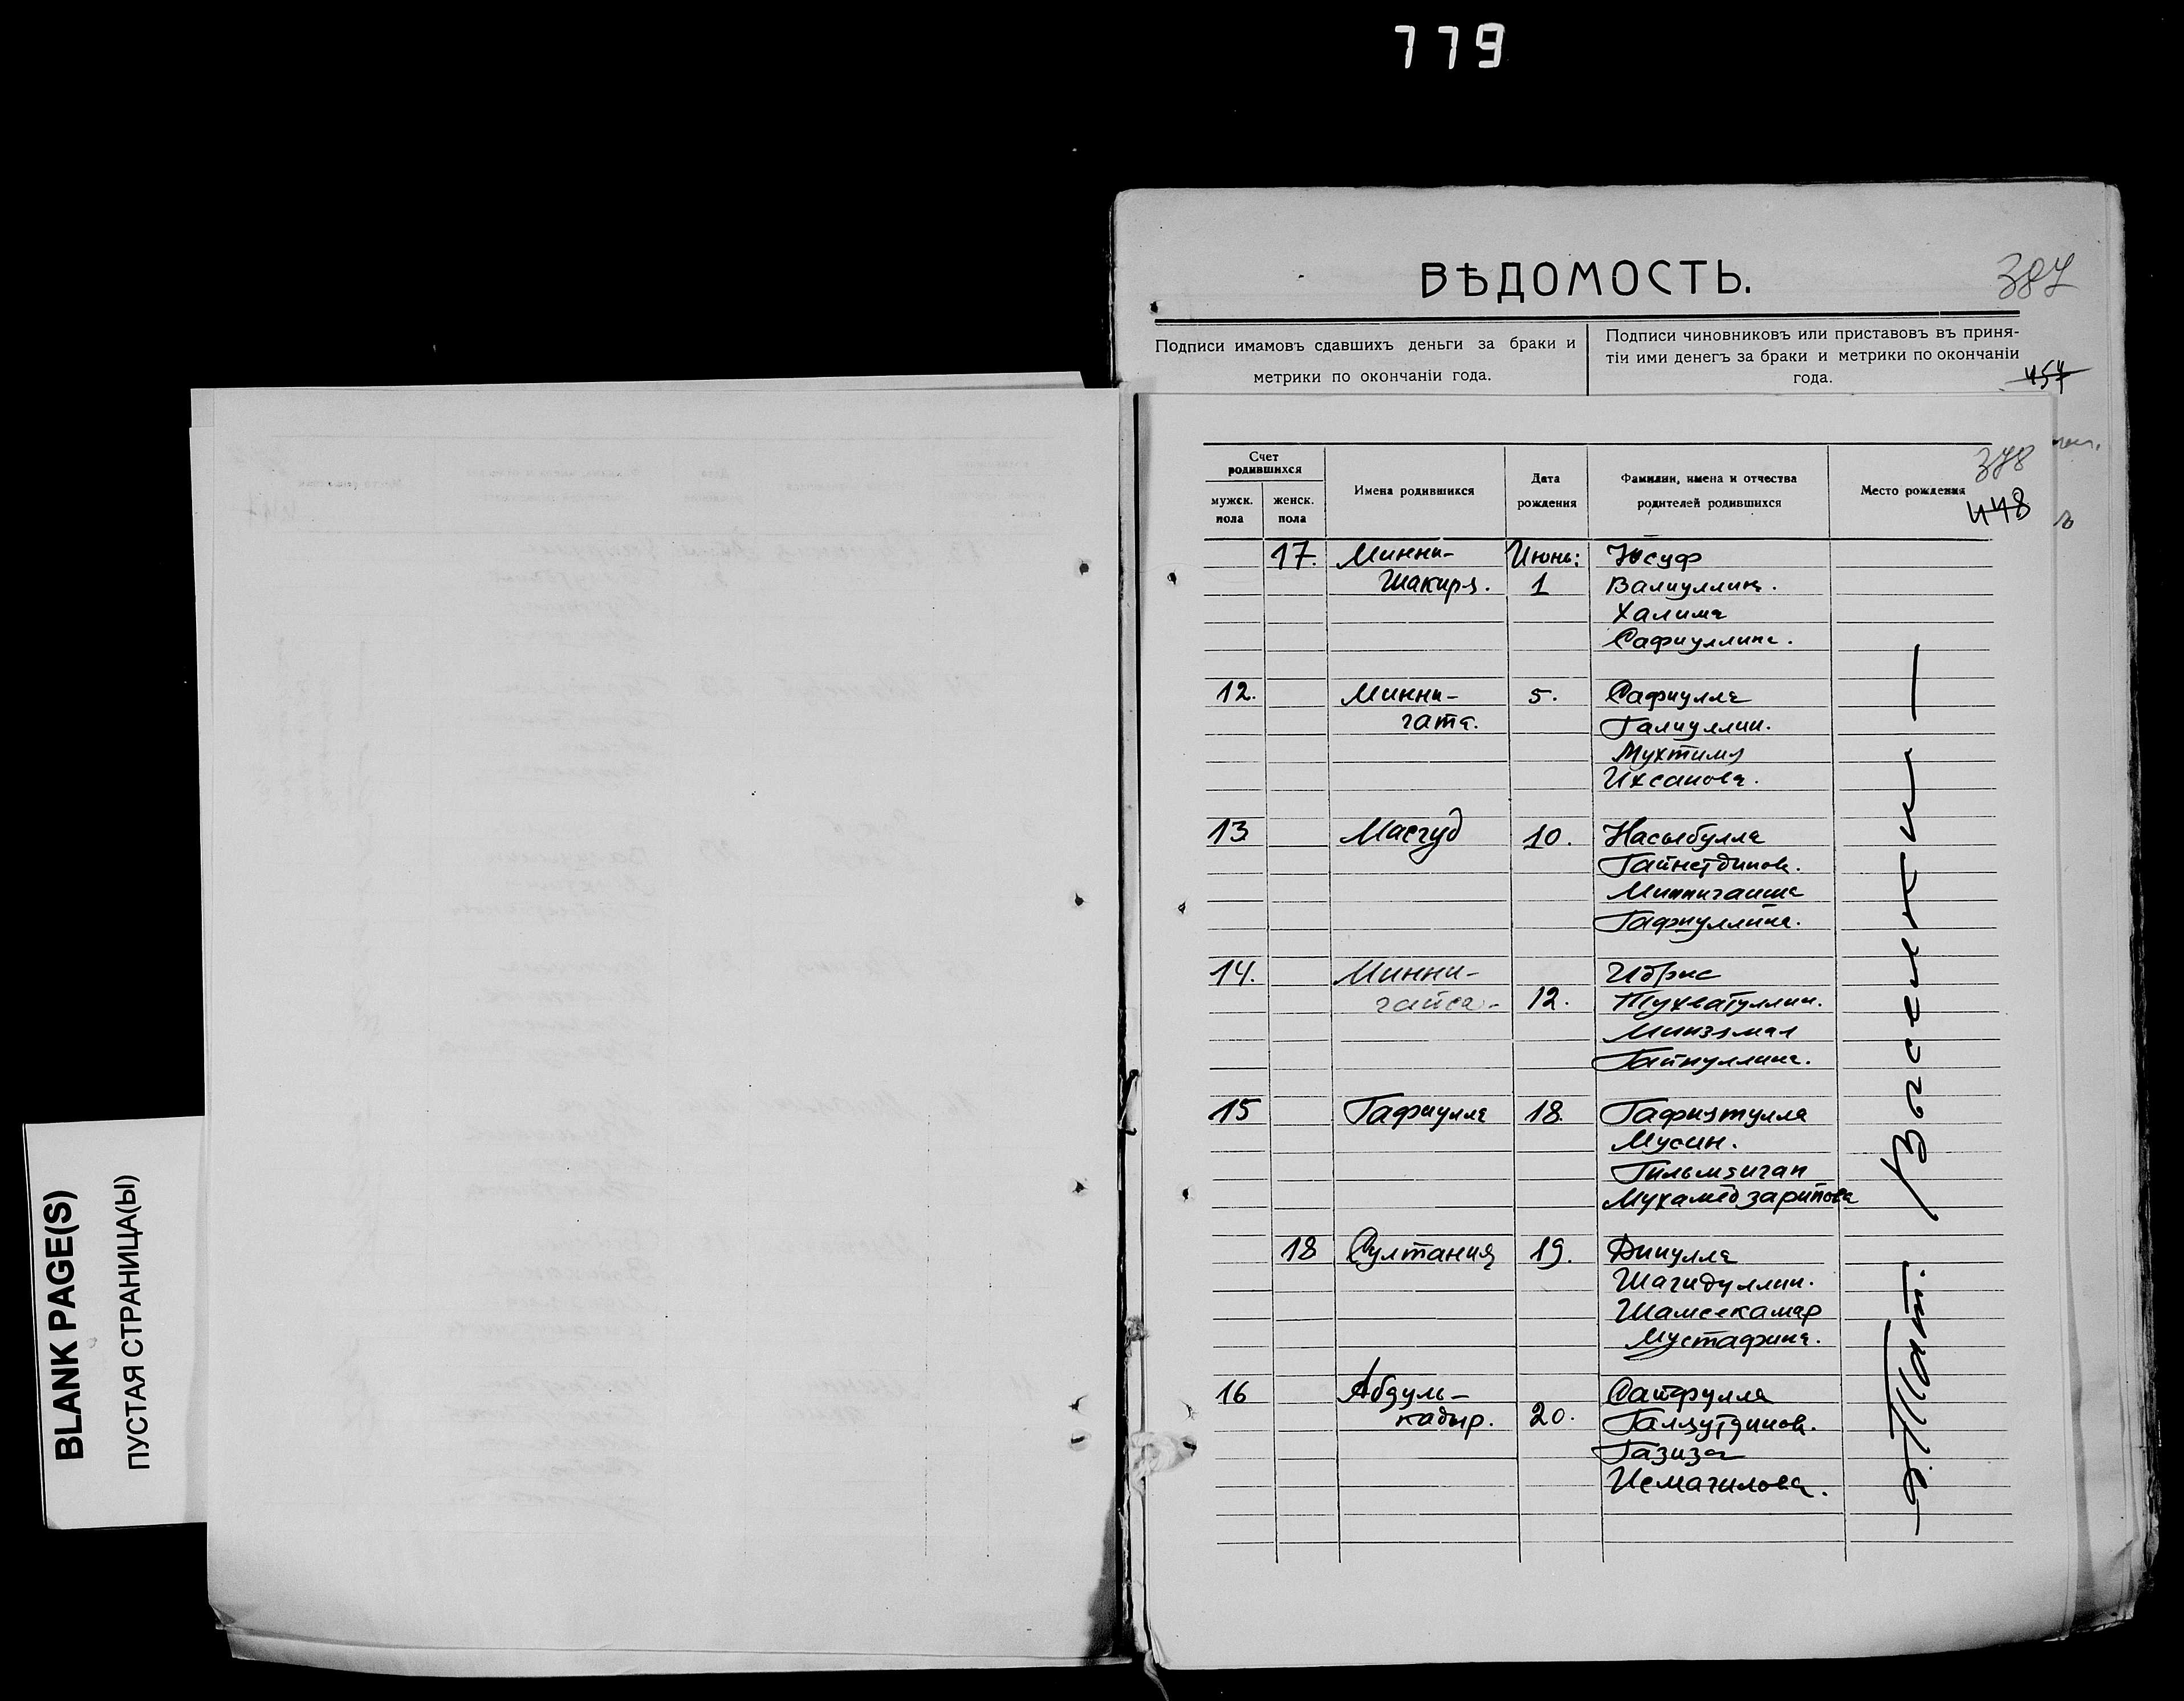 779
ВѢДОМОСТЬ.
387
Подписи имамовъ сдавшихъ деньги за браки и
метрики по окончаніи года.
Подписи чиновниковъ или приставовъ въ приня-
тіи ими денегъ за браки и метрики по окончаніи
года.
457
378
448
Счет
родившихся
мужск.
пола
женск.
пола
Имена родившихся
Дата
рождения
Фамилии, имена и отчества
родителей родившихся
Место рождения
17. Минни- Июнь: Юсуф
Шакирә. 1 Валиуллин.
Халима
Сафиуллина.
12. Минни- 5. Сафиулла
гата. Галиуллин.
Мухтимә
Ихсанова.
13 Масгуд 10. Насыбулла
Гайнетдинов.
Миннигаиша
Гафиуллина.
14. Минни- Идрис
гайса- 12. Тухватуллин.
Минзәмал
Гайнуллина.
15 Гафиулла 18 Гафиәтулла
Мусин.
Гильмеиган
Мухамедзарипова
18 Султания 19. Динулла
Шагидуллин.
Шамсекамар
Мустафина.
16 Абдуль- Сайфулла
кадыр. 20. Галяутдинов.
Газиза
Исмагилова.
д. Тат. Выселки
BLANK PAGE(S)
ПУСТАЯ СТРАНИЦА(Ы)